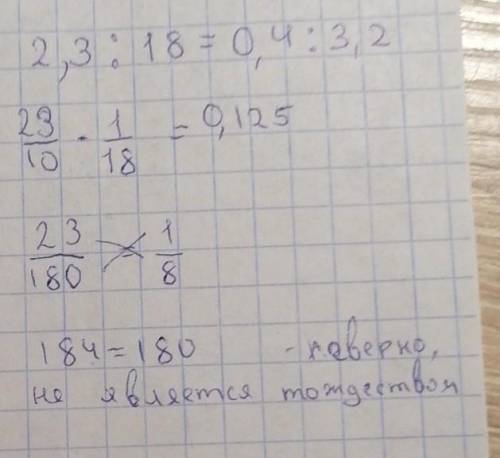 2,3 : 18 = 0,4 : 3,2
23/10 · 1/18 = 0,125
23/180 × 1/8
184 = 180 - неверно,
не является тождеством